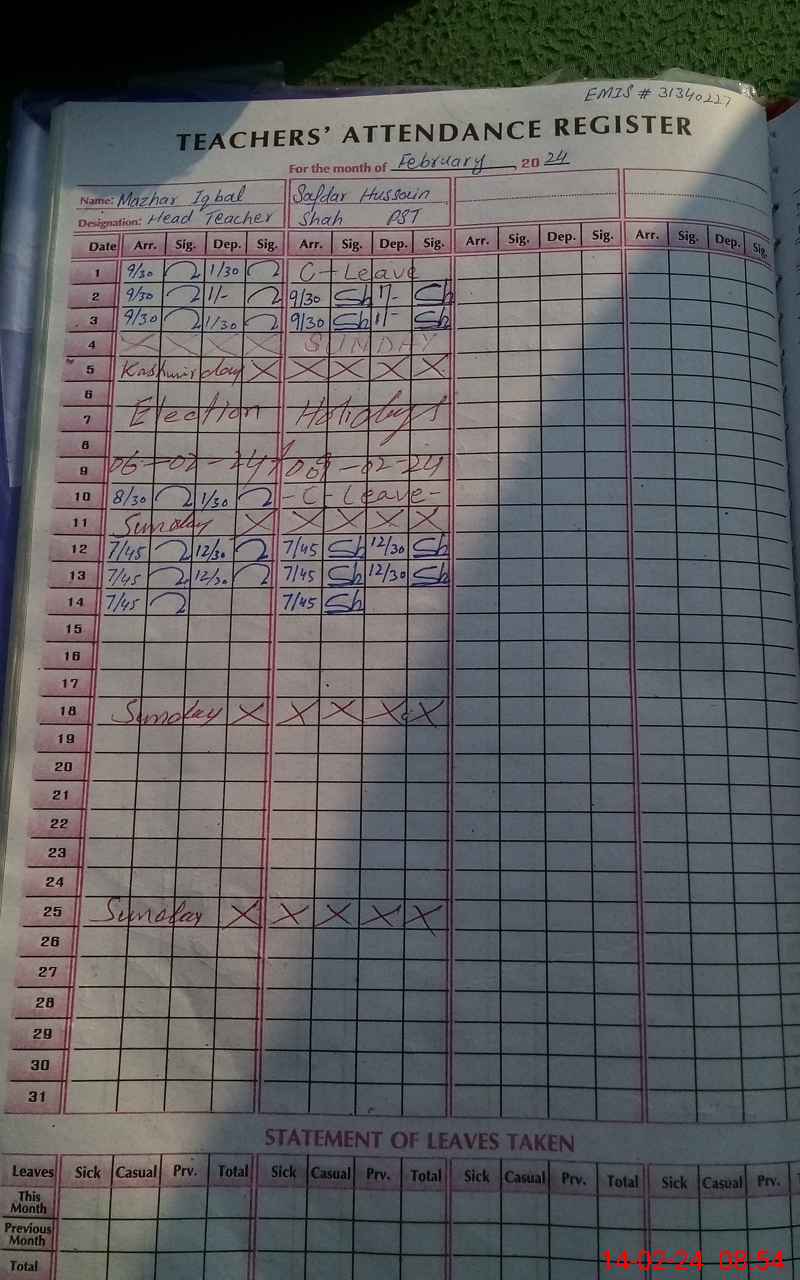 EMIS # 31340227
TEACHERS' ATTENDANCE REGISTER
For the month of February 2024
Name: Mazhar Iqbal Safdar Hussain
Designation: Head Teacher Shah PST
Date Arr. Sig. Dep. Sig. Arr. Sig. Dep. Sig. Arr. Sig. Dep. Sig. Arr. Sig. Dep. Sig.
1 9/30 1/30 C-Leave
2 9/30 1/- 9/30 Sh 1/- Sh
3 9/30 1/30 9/30 Sh 1/- Sh
4 X X X X SUNDAY
5 Kashmir day X X X X X
6
7 Election Holidays
8
9 06-02-24 to 09-02-24
10 8/30 1/30 -C-Leave-
11 Sunday X X X X X
12 7/45 12/30 7/45 Sh 12/30 Sh
13 7/45 12/30 7/45 Sh 12/30 Sh
14 7/45 7/45 Sh
15
16
17
18 Sunday X X X X X
19
20
21
22
23
24
25 Sunday X X X X X
26
27
28
29
30
31
STATEMENT OF LEAVES TAKEN
Leaves Sick Casual Prv. Total Sick Casual Prv. Total Sick Casual Prv. Total Sick Casual Prv.
This
Month
Previous
Month
Total
14-02-24 08:54